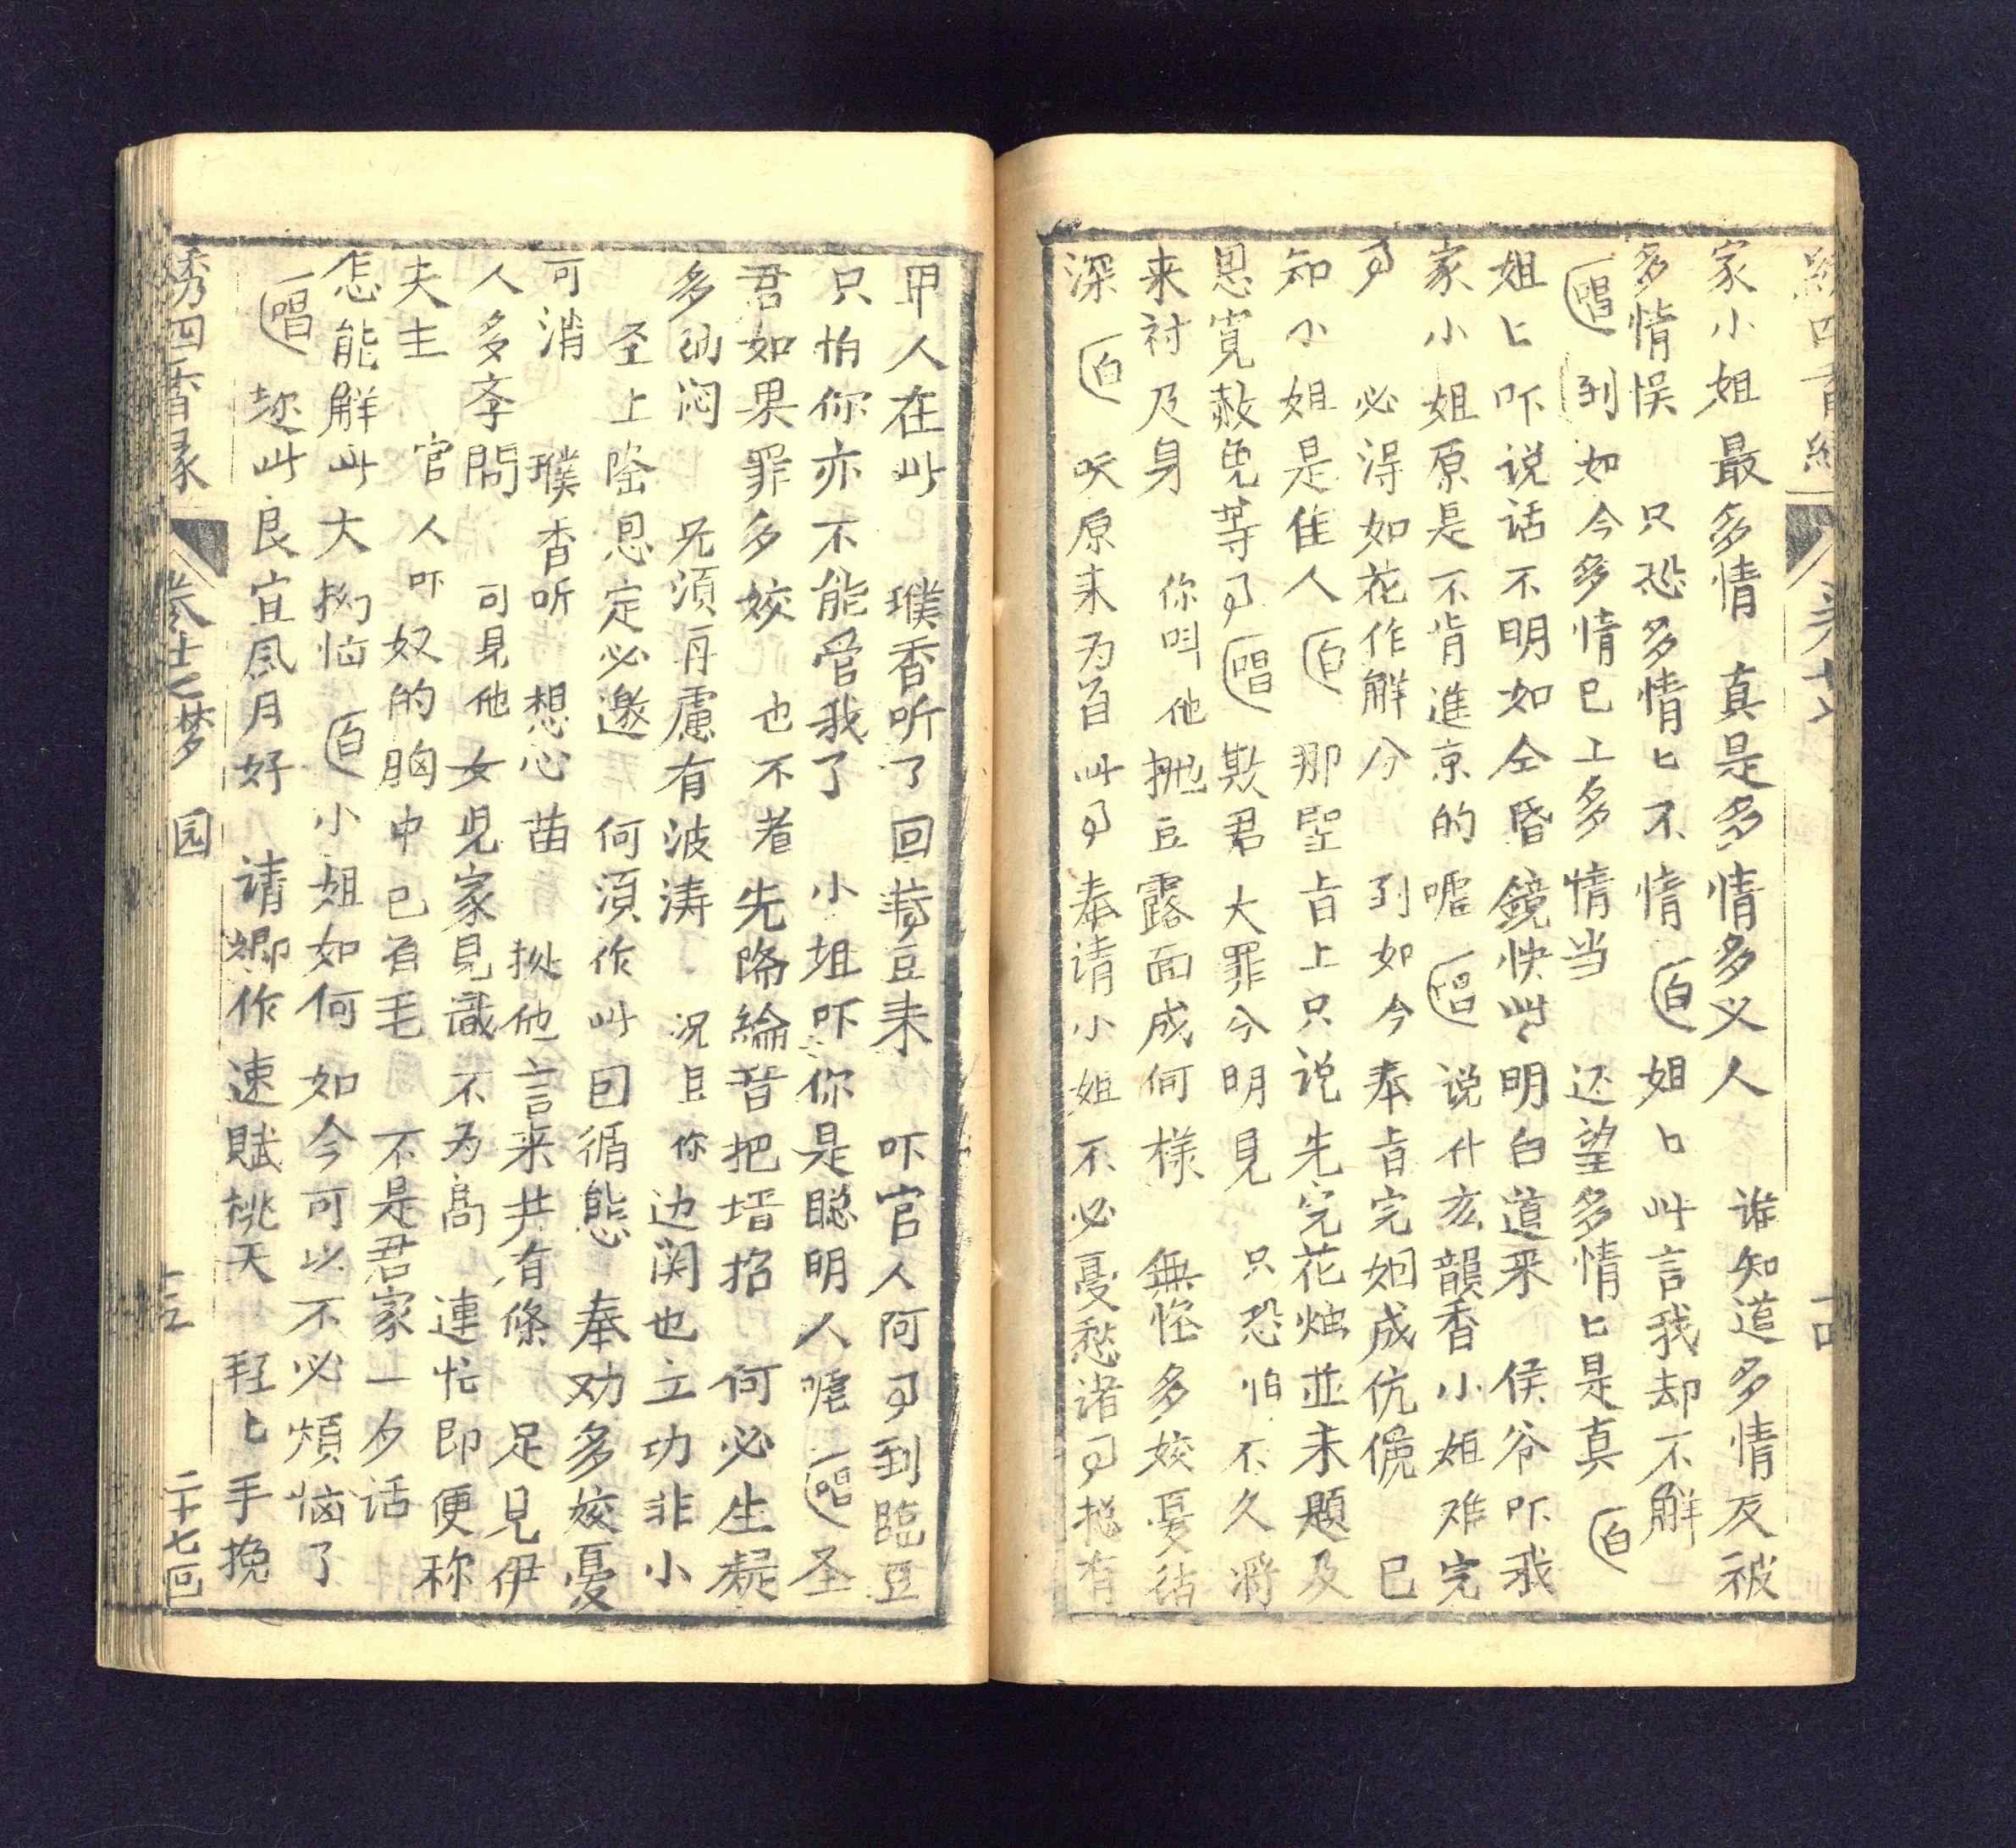 家小姐最多情 真是多情多义人 谁知道多情反被
多情悮 只恐多情匕不情 白 姐匕此言我却不解
唱 到如今多情已上多情当 还望多情匕是真 白
姐匕吓说话不明如仝昏鏡快些明白道来 侯爷吓我
家小姐原是不肯進京的嘘 唱 说什庅韻香小姐难完
必得如花作解分 到如今奉旨完姻成伉儷 已
知小姐是佳人 白 那聖旨上只说先完花烛並未題及
恩寬赦免等 唱 欺君大罪今明見 只恐怕不久将
来討及身 你叫他抛豆露面成何樣 無怪多姣憂
深 白 听原来为有此 奉请小姐不必憂愁诸 有
甲人在此 璞香听了回豆来 吓官人阿 到臨豆
只怕你亦不能管我了 小姐吓你是聪明人嘘 唱 圣
君如果罪多姣 也不着先降綸音把壻招 何必生疑
多纳闷 兄須再慮有波涛 况且你边関也立功非小
圣上隆恩定必邀 何須作此囙循態 奉劝多姣憂
可消 璞香听 想心苗 挨他言来共有條 足見伊
人多孝問 可見他女児家見識不为高 連忙即便称
夫主 官人吓奴的胸中已有毛 不是君家一夕话
怎能解此大拗恼 白 小姐如何如今可以不必煩恼了
唱 趂此良宜風月好 请卿作速賦桃夭 轻匕手挽
綉四香緣 卷十之梦 园 十三 二十七囬